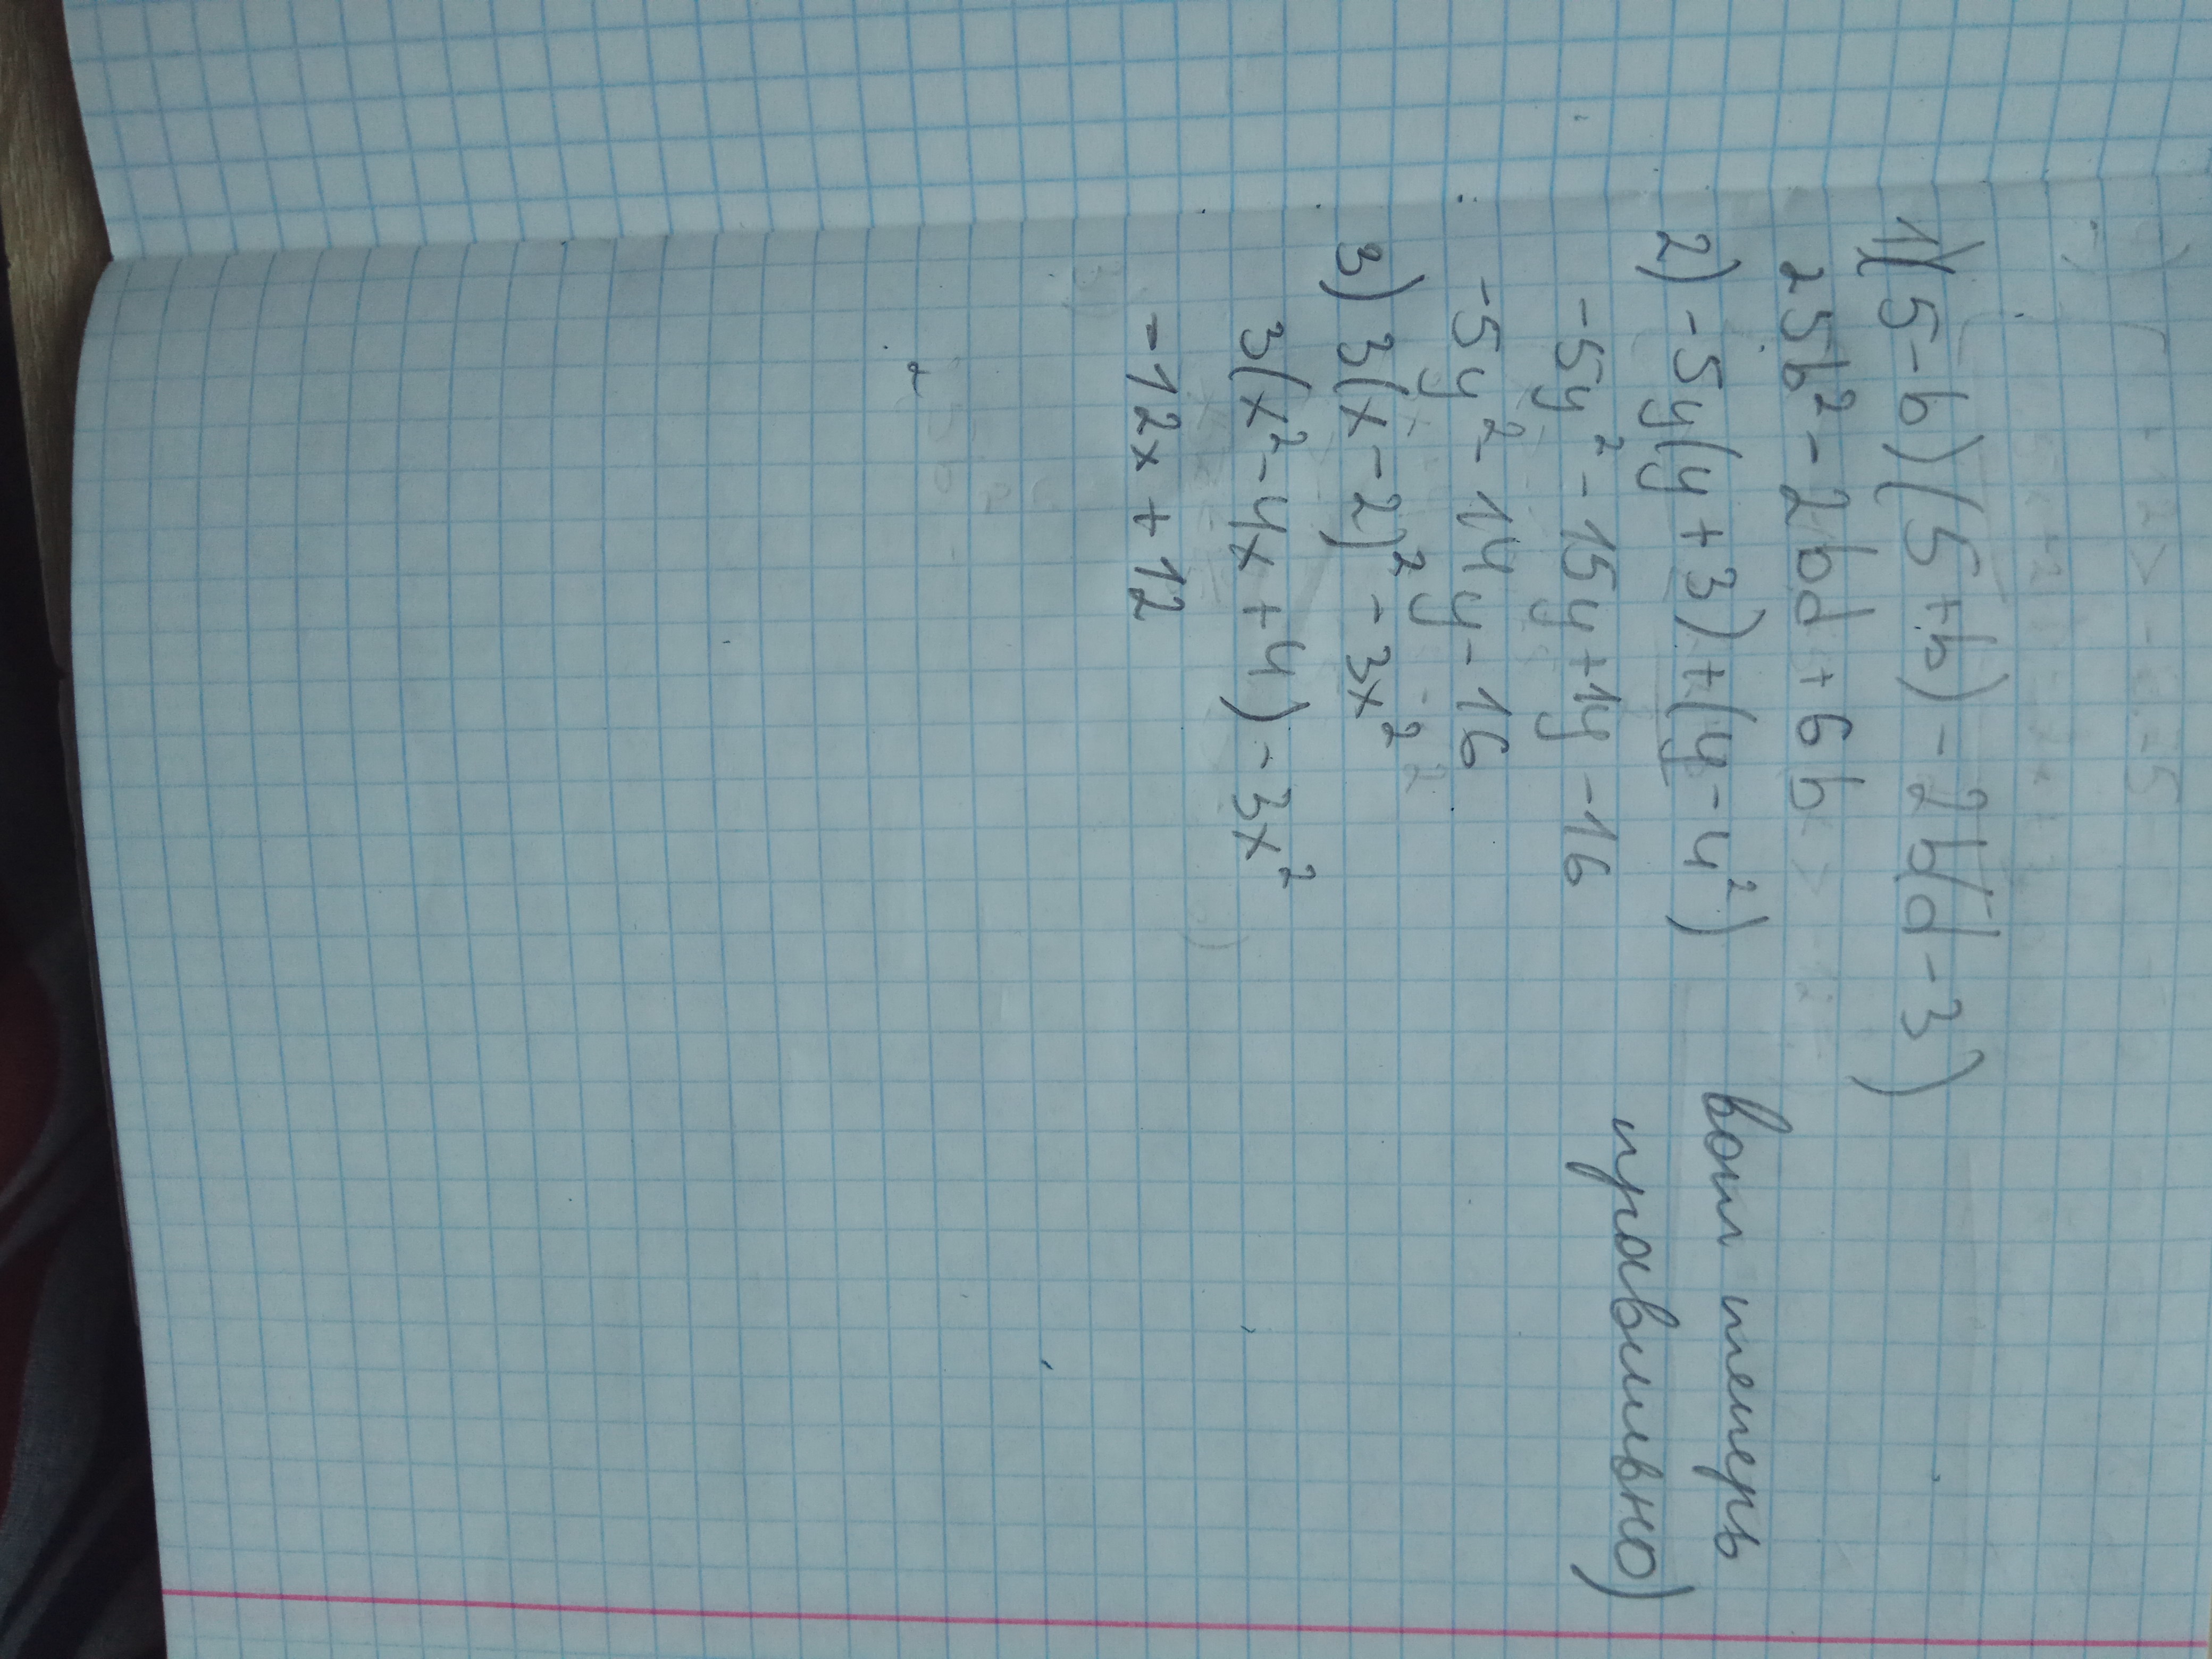 1)(5-b)(5+b)-2b(d-3)
25b²-2bd+6b
2)-5y(y+3)+(y-4²)
-5y²-15y+1y-16
-5y²-14y-16
3)3(x-2)²-3x²
3(x²-4x+4)-3x²
-12x+12
вот теперь
правильно)